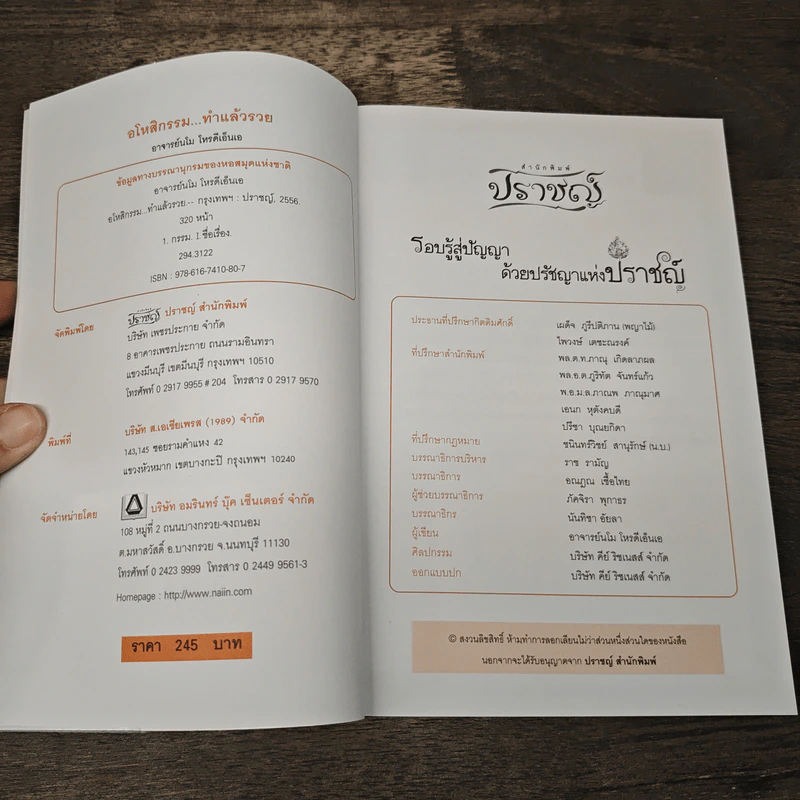 อโหสิกรรม...ทำแล้วรวย
อาจารย์นโม โหรดีเอ็นเอ
ข้อมูลทางบรรณานุกรมของหอสมุดแห่งชาติ
อาจารย์นโม โหรดีเอ็นเอ
อโหสิกรรม...ทำแล้วรวย.-- กรุงเทพฯ : ปราชญ์, 2556.
320 หน้า
1. กรรม. I.ชื่อเรื่อง.
294.3122
ISBN : 978-616-7410-80-7
จัดพิมพ์โดย
ปราชญ์ ปราชญ์ สำนักพิมพ์
บริษัท เพชรประกาย จำกัด
8 อาคารเพชรประกาย ถนนรามอินทรา
แขวงมีนบุรี เขตมีนบุรี กรุงเทพฯ 10510
โทรศัพท์ 0 2917 9955 # 204 โทรสาร 0 2917 9570
พิมพ์ที่
บริษัท ส.เอเซียเพรส (1989) จำกัด
143,145 ซอยรามคำแหง 42
แขวงหัวหมาก เขตบางกะปิ กรุงเทพฯ 10240
จัดจำหน่ายโดย
บริษัท อมรินทร์ บุ๊ค เซ็นเตอร์ จำกัด
108 หมู่ที่ 2 ถนนบางกรวย-จงถนอม
ต.มหาสวัสดิ์ อ.บางกรวย จ.นนทบุรี 11130
โทรศัพท์ 0 2423 9999 โทรสาร 0 2449 9561-3
Homepage : http://www.naiin.com
ราคา 245 บาท
สำนักพิมพ์
ปราชญ์
รอบรู้สู่ปัญญา
ด้วยปรัชญาแห่งปราชญ์
ประธานที่ปรึกษากิตติมศักดิ์ เผด็จ ภูรีปติภาน (พญาไม้)
ไพวงษ์ เตชะณรงค์
ที่ปรึกษาสำนักพิมพ์ พล.ต.ท.ภาณุ เกิดลาภผล
พล.อ.ต.ภูริทัต จันทร์แก้ว
พ.อ.ม.ล.ภาณพ ภาณุมาศ
เอนก หุตังคบดี
ปรีชา บุณยกิดา
ที่ปรึกษากฎหมาย ชนินทร์วิชย์ สานุรักษ์ (น.บ.)
บรรณาธิการบริหาร ราช รามัญ
บรรณาธิการ อณฎณ เชื้อไทย
ผู้ช่วยบรรณาธิการ ภัคจิรา พุกาธร
บรรณาธิกร นันทิชา อัยลา
ผู้เขียน อาจารย์นโม โหรดีเอ็นเอ
ศิลปกรรม บริษัท คีย์ ริชเนสส์ จำกัด
ออกแบบปก บริษัท คีย์ ริชเนสส์ จำกัด
© สงวนลิขสิทธิ์ ห้ามทำการลอกเลียนไม่ว่าส่วนหนึ่งส่วนใดของหนังสือ
นอกจากจะได้รับอนุญาตจาก ปราชญ์ สำนักพิมพ์